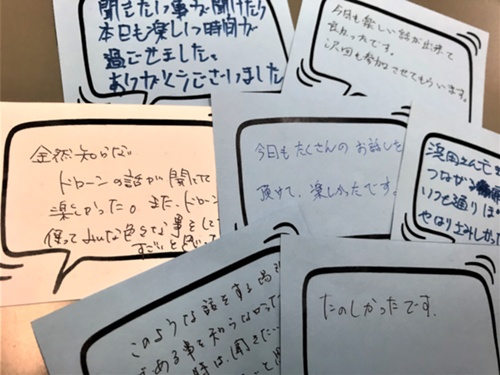 聞きたい事が聞けたり
本日も楽しい時間が
過ごせました。
ありがとうございました
今日も楽しい話が出来て
良かったです。
次回も参加させてもらいます。
全然知らない
ドローンの話が聞けて
楽しかった。また、ドローン
使って
色々な事をして
すごいと思って
今日もたくさんのお話した
頂けて、楽しかったです。
浜田さんと
つながる
いつも通り
やなり
このような話をする
ある事を知らなかった
時は、聞きた
たのしかったです.